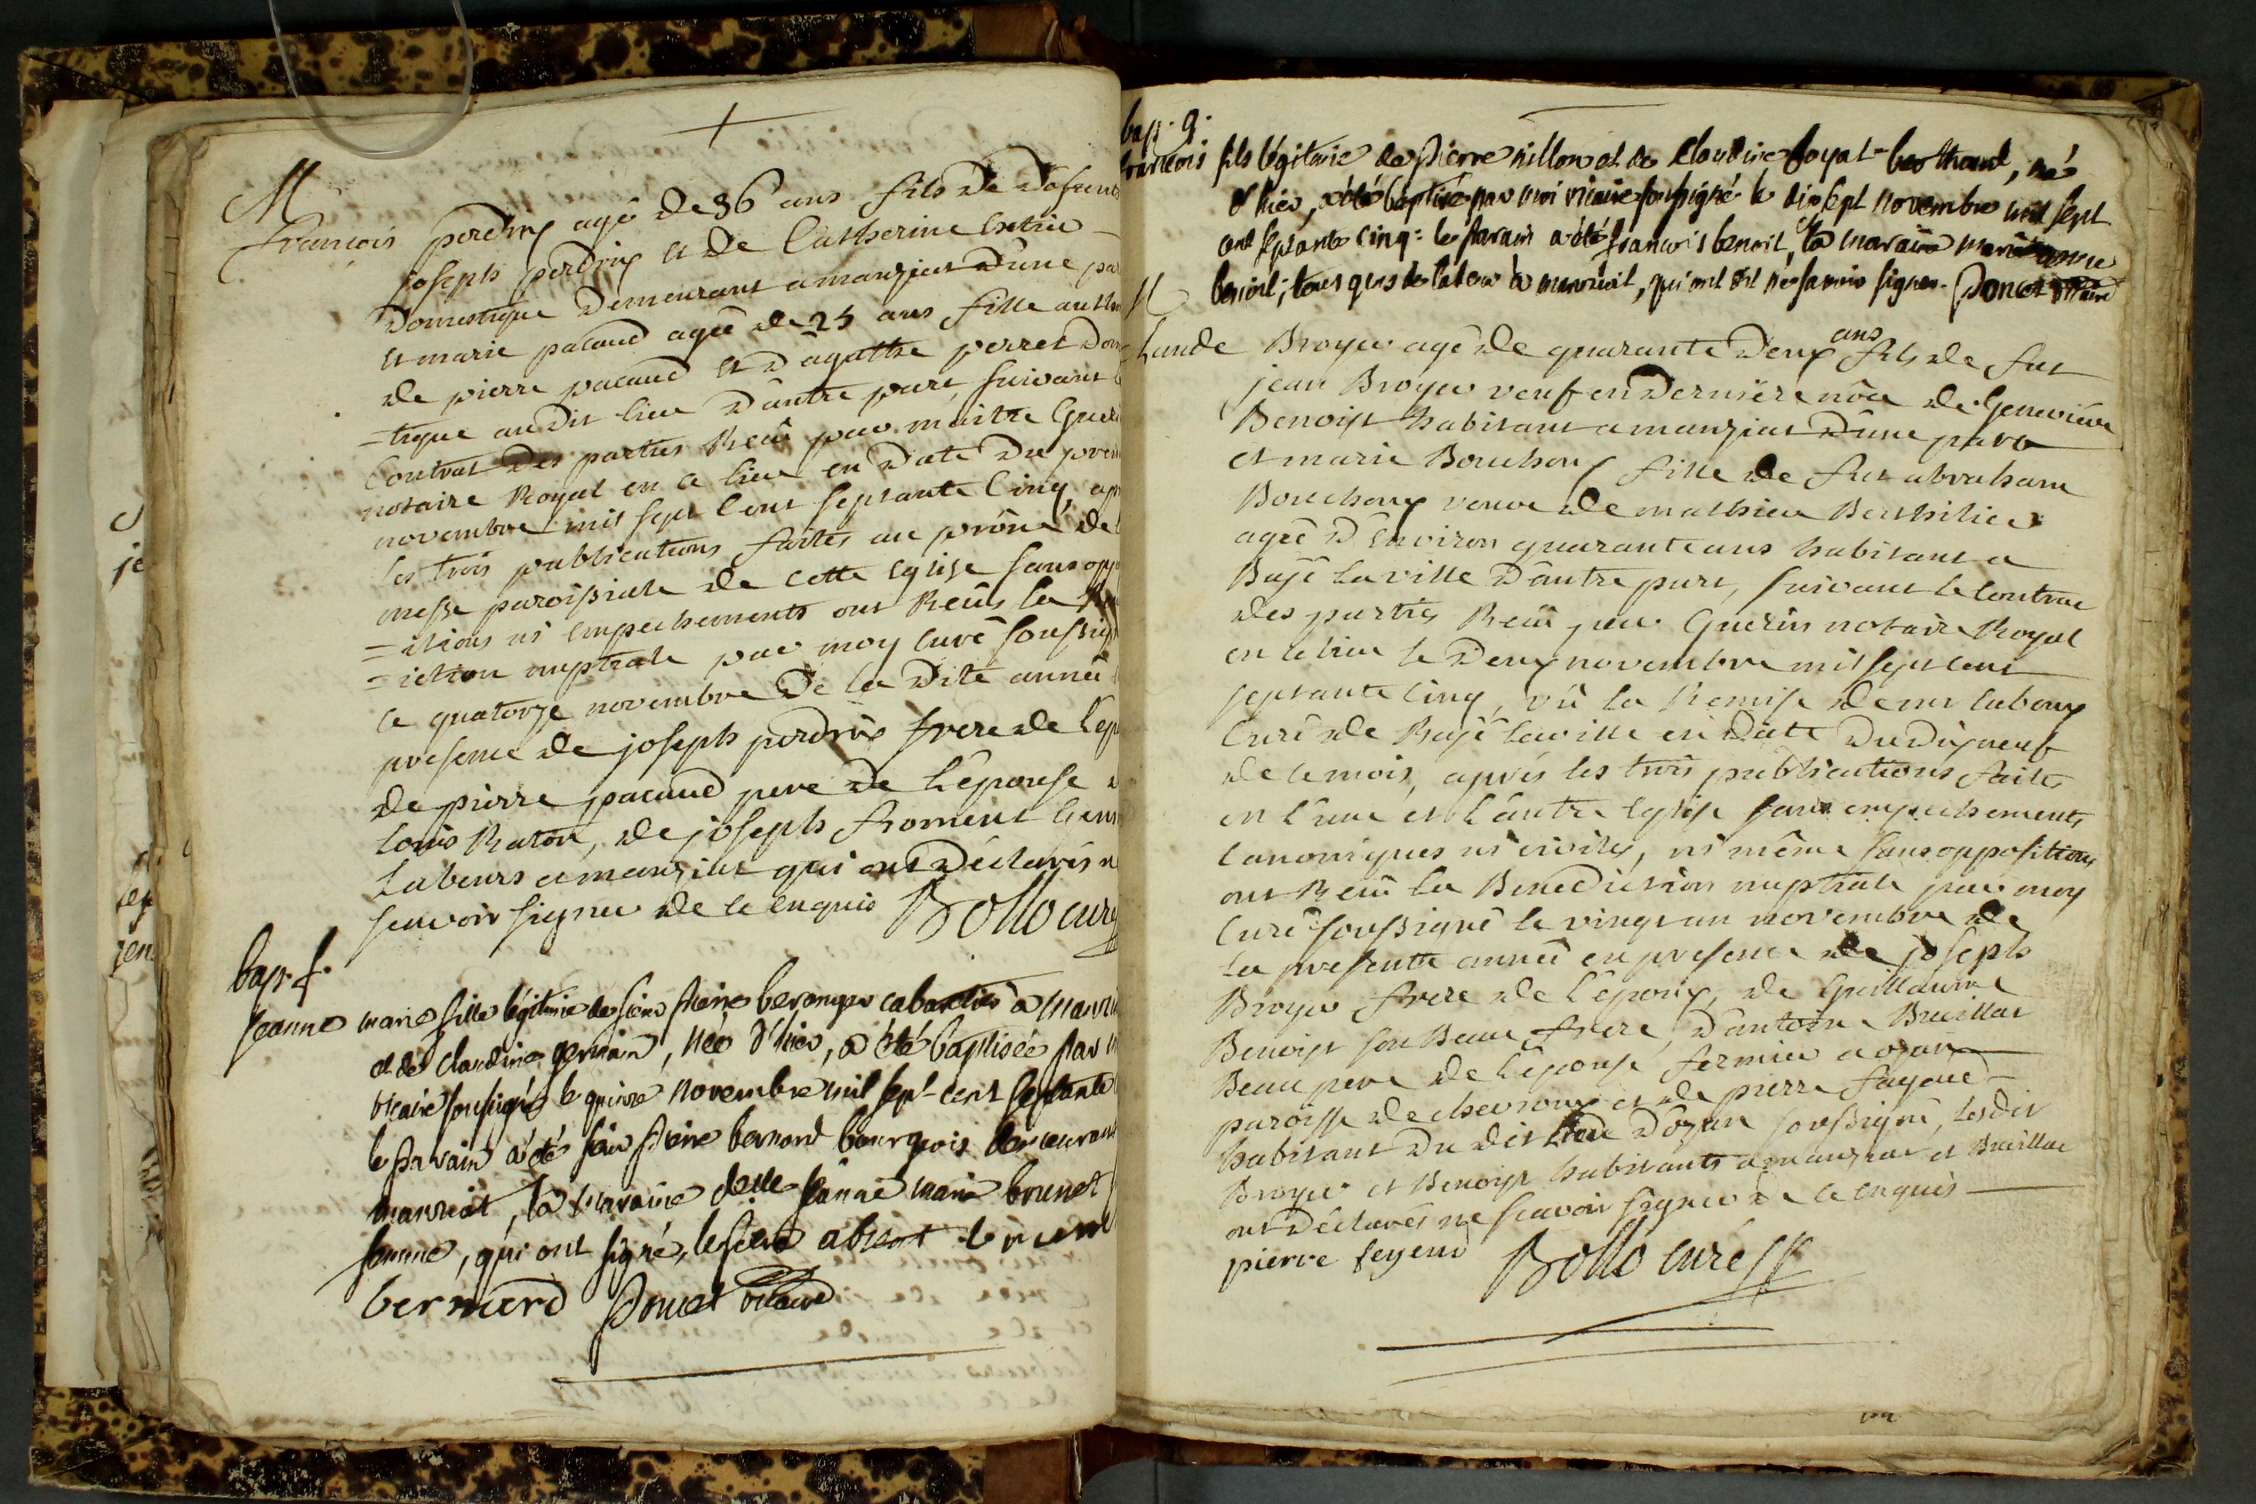 M
François perdrix agé de 36 ans fils de defunt
joseph perdrix et de Catherine
domestique demeurant a manziat d'une par
et marie pacaud agée de 25 ans fille auth
de pierre pacaud et d'agathe perret dom
=tique au dit lieu d'autre part, suivant le
Contrat des parties Reçu par maitre Gueri
notaire Royal en ce lieu en date du prem
novembre mil sept cent septante Cinq, apr
les trois publications faites au prône de
messe paroissiale de cette eglise sans opp
=itions ni empechements ont Reçus la
=iction nuptiale par moy curé soussig
ce quatorze novembre de la dite année
presence de joseph perdrix frere de l'ep
de pierre pacaud pere de l'épouse
louis Raton, de joseph froment
Labeurs a manziat qui ont déclarés n
scavoir signer de ce enquis Bollo curé
bap. f.
jeanne marie fille légitime de sieur pierre beranger cabaretier à manzi
et de claudine germain, née d'hier, a été baptisée par m
vicaire soussigné le quinze novembre mil sept cent septante
le parain a été sieur pierre bernard bourgeois demeurant
manziat, la maraine delle jeanne marie brunet
femme, qui ont signé, le pere absent
bernard Poncet vicaire
bap. g.
francois fils légitime de pierre nillon et de Claudine boyat-berthaud, né
d'hier, a été baptisé par moi vicaire soussigné le dixsept novembre mil sept
cent septante cinq: le parain a été francois benoit, la maraine marie anne
benoit; tous gens de labeur à manziat, qui ont dit ne savoir signer. Poncet vicaire
M
Claude Broyer agé de quarante deux ans fils de fut
jean Broyer veuf en derniere nôce de Genevieve
Benoist habitant a manziat d'une part
et marie Bouchoux fille de fut abraham
Bouchoux veuve de mathieu Berthilier
agée d'environ quarante ans habitant a
Bagé la ville d'autre part, suivant le Contrat
des parties Reçu par Guerin notaire Royal
en ce lieu le deux novembre mil sept cent
septante Cinq, vû la Remise de mr
Curé de Bagé la ville en date du dixneuf
de ce mois, après les trois publications faites
en l'une et l'autre eglise sans empechements
canoniques ni civiles, ni même sans oppositions
ont Reçu la Benediction nuptiale par moy
Curé soussigné le vingt un novembre de
la presente année en presence de joseph
Broyer frere de l'epoux, de Guillaume
Benoist son Beau frere, d'antoine Buillar
Beau pere de l'epouse fermier a ozan
paroisse de chevroux et de pierre fayend
habitant du dit lieu d'ozan soussigné, lesdit
Broyer et Benoist habitants a manziat et Buillar
ont déclarés ne scavoir signer de ce enquis
pierre feyend Bollo curé